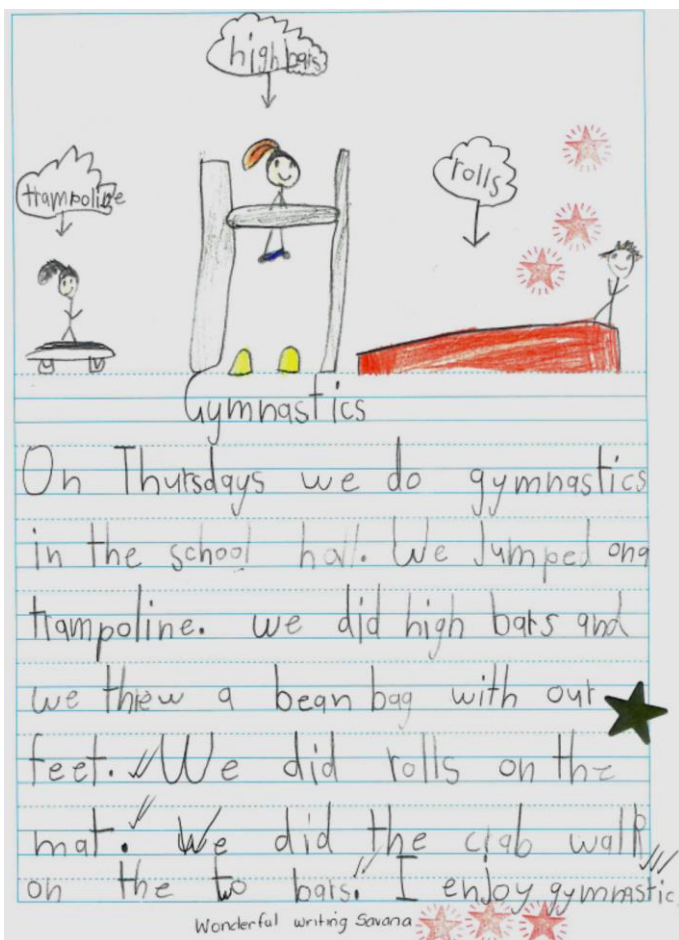 high bars
trampoline
rolls
Gymnastics
On Thursdays we do gymnastics
in the school hall. We Jumped on a
trampoline. we did high bars and
we threw a bean bag with our
feet. We did rolls on the
mat. We did the crab walk
on the two bars. I enjoy gymnastic
Wonderful writing Savana